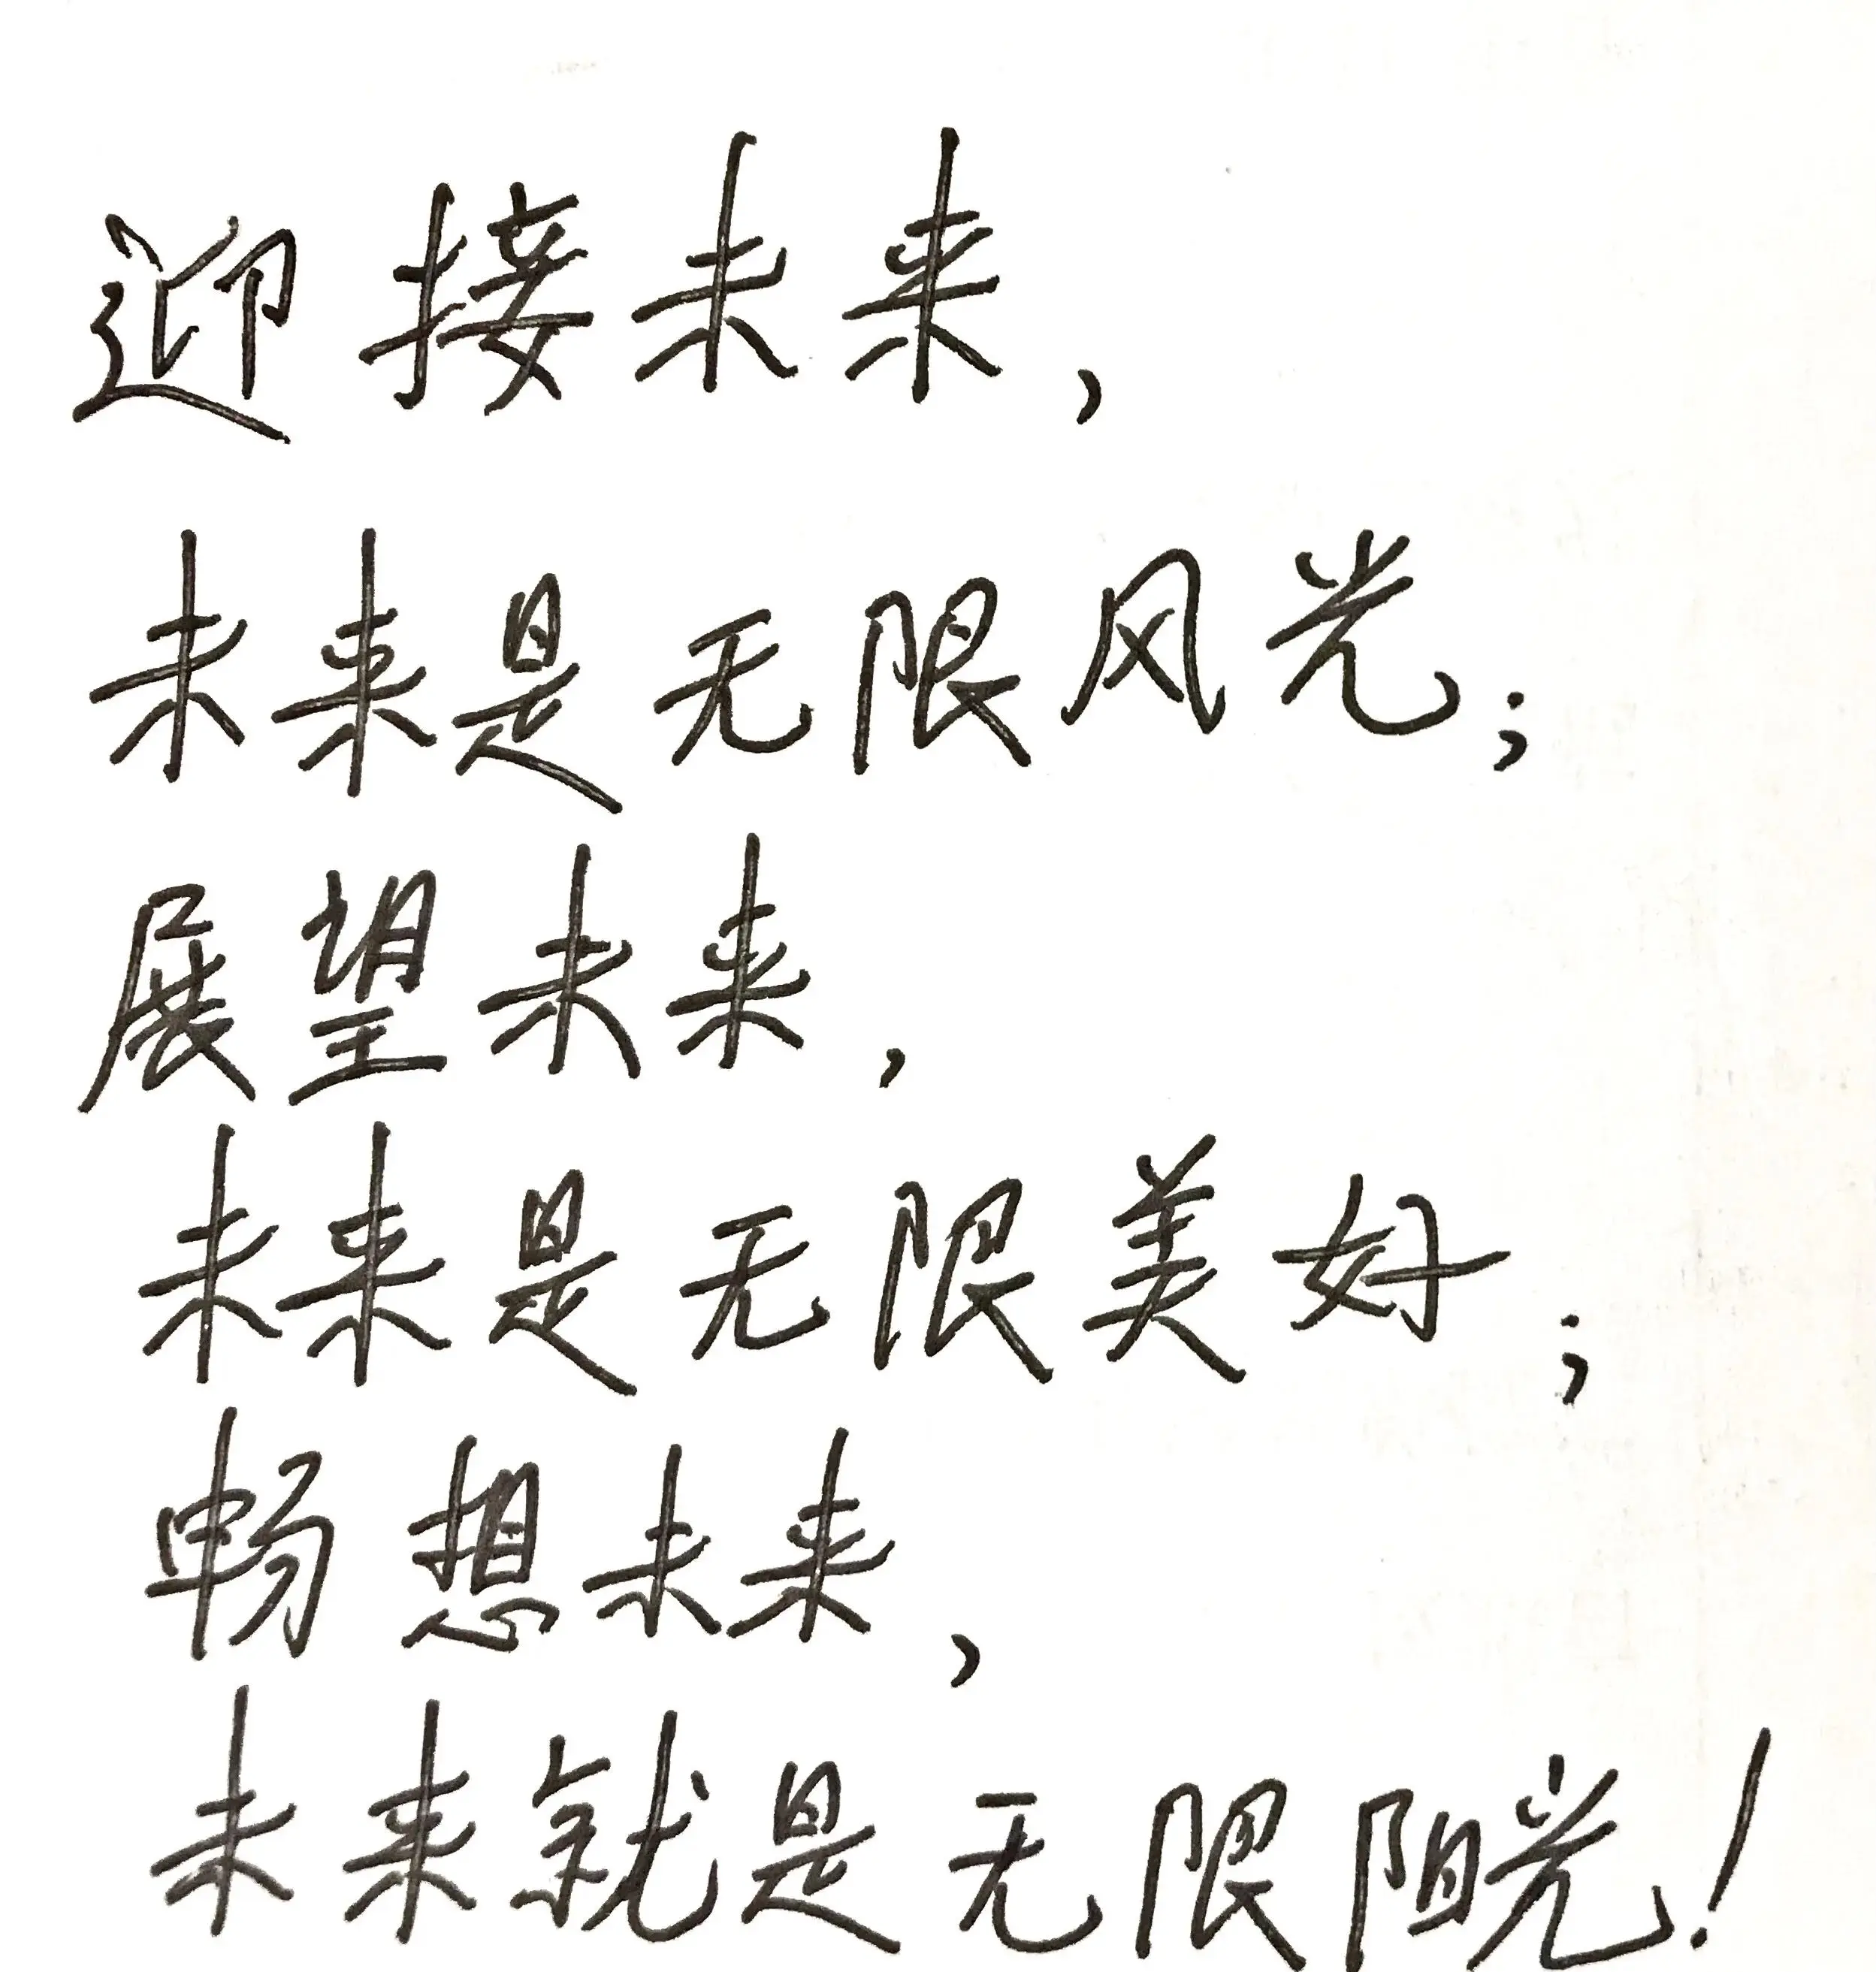 迎接未来，
未来是无限风光；
展望未来，
未来是无限美好；
畅想未来，
未来就是无限阳光！